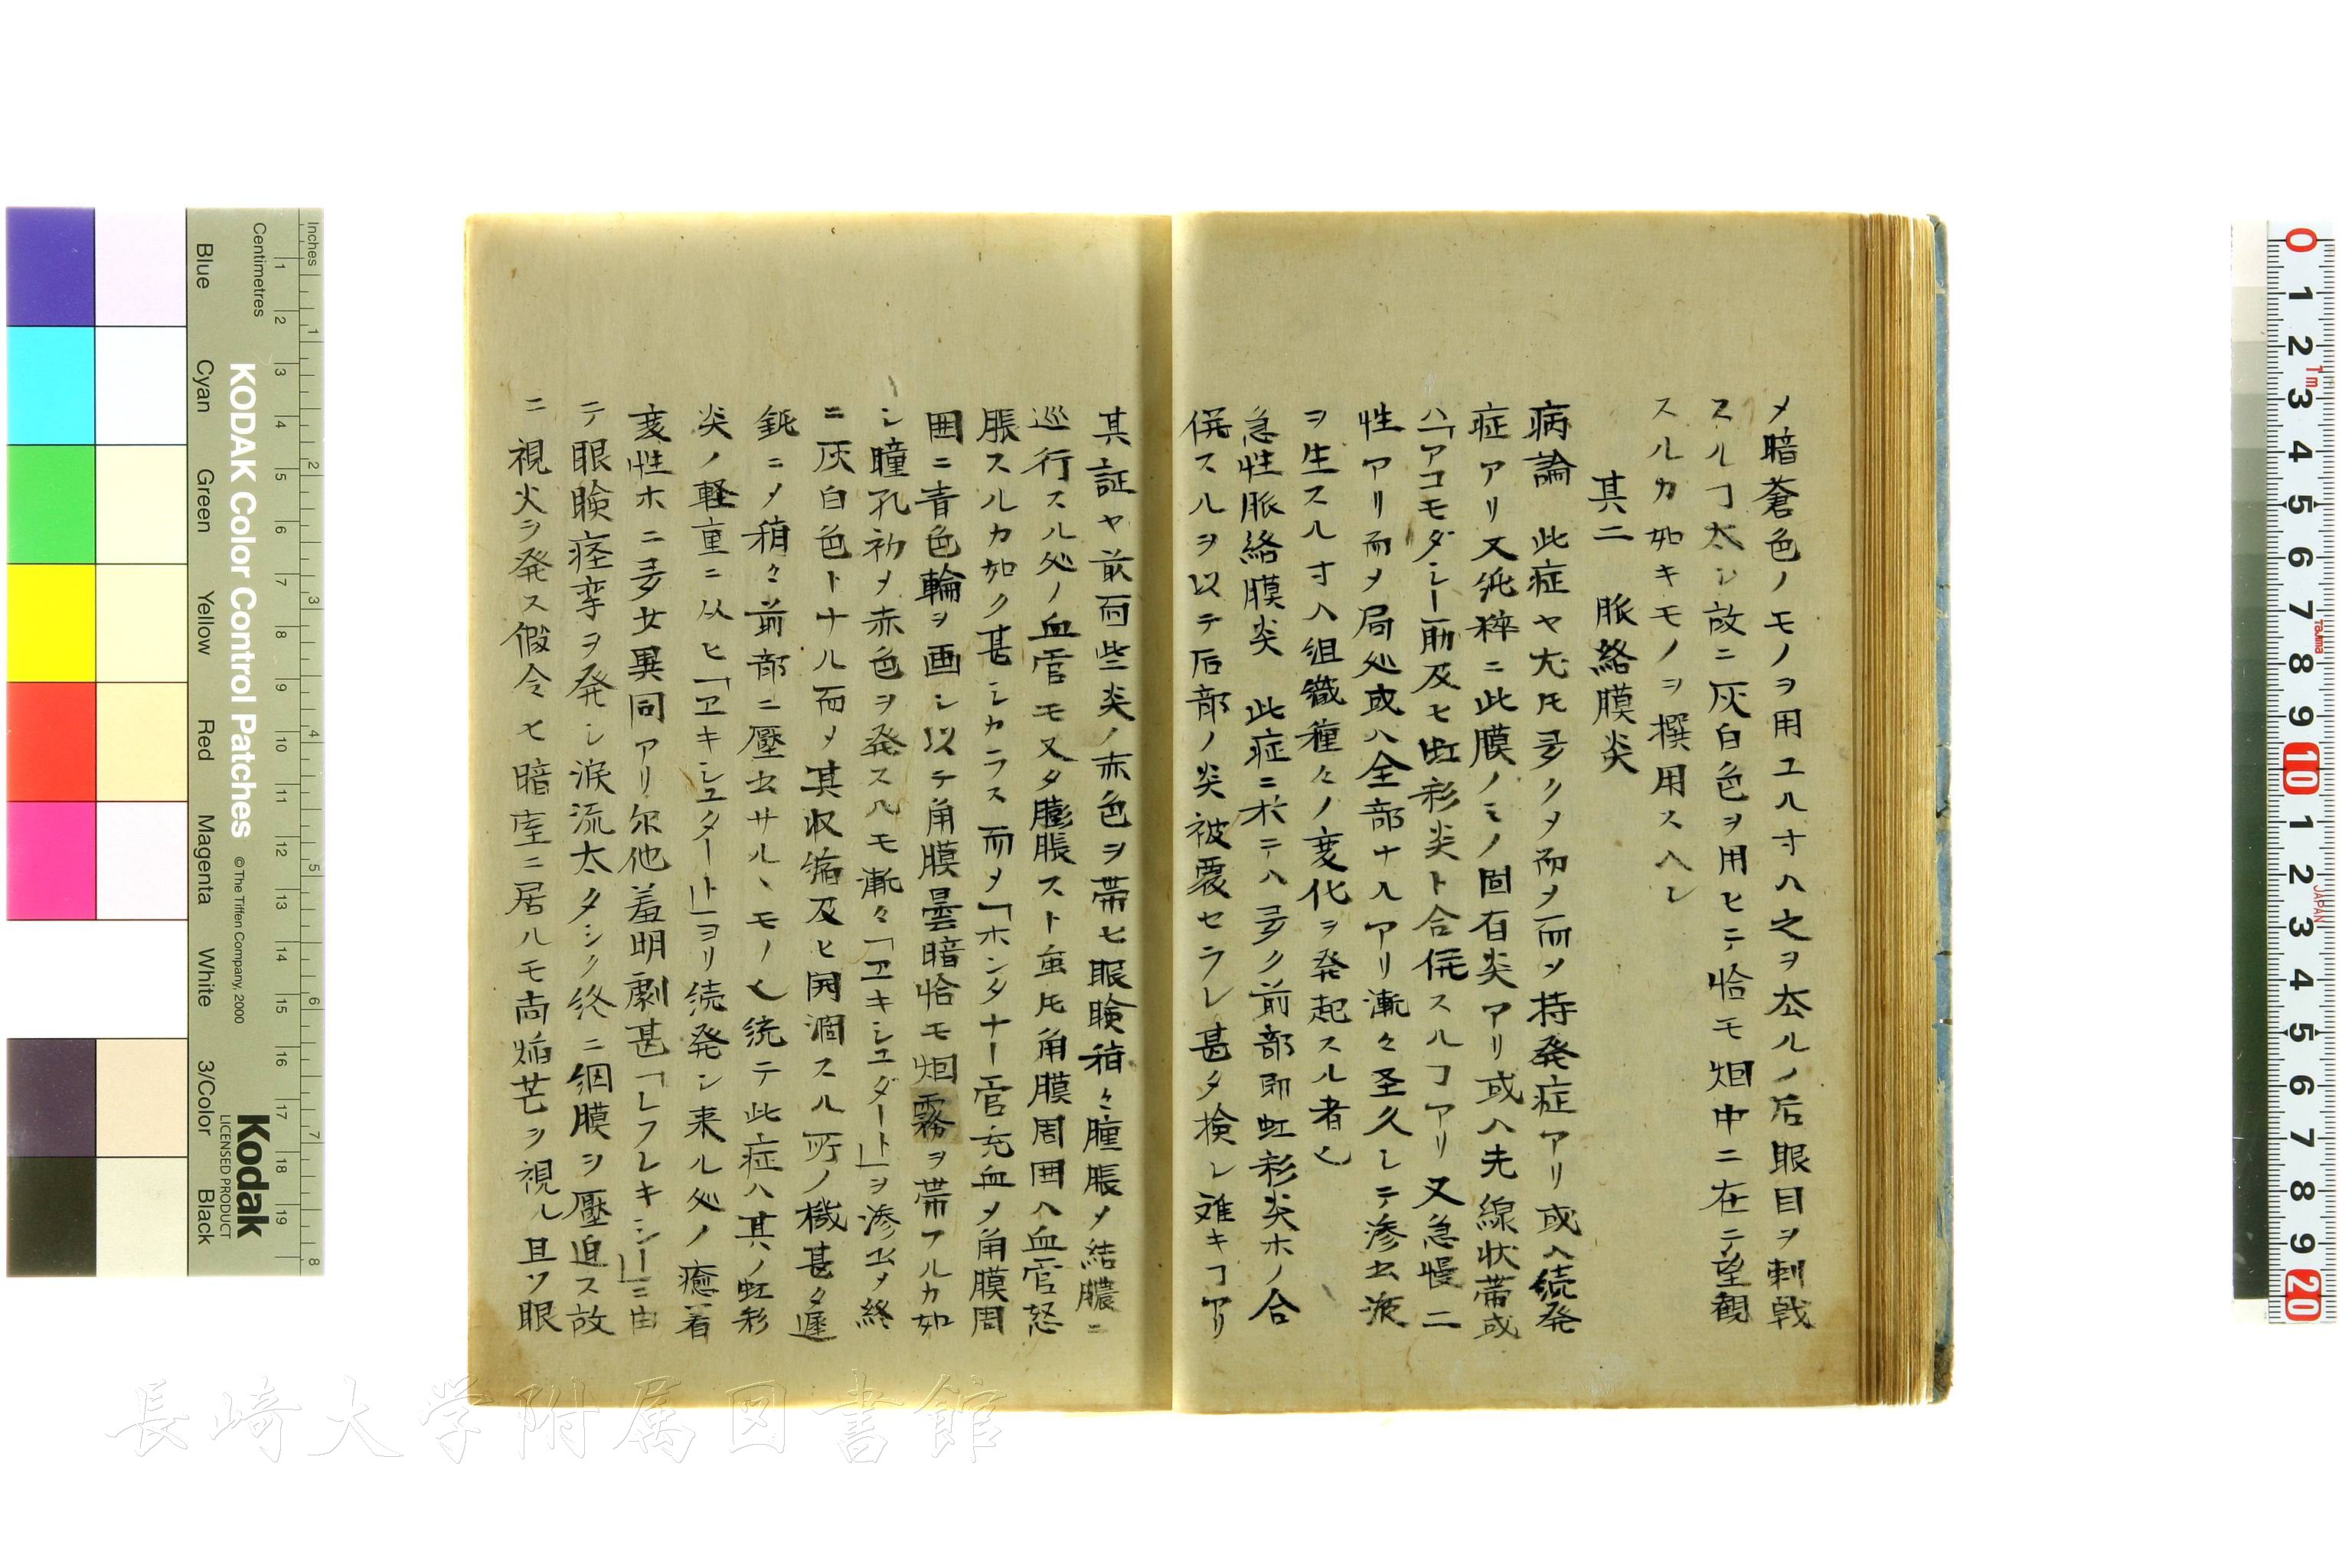 メ暗蒼色ノモノヲ用ユル寸ハ之ヲ去ルノ后眼目ヲ刺戟
スルヿ太シ故ニ灰白色ヲ用ヒテ恰モ烟中ニ在テ望観
スルカ如キモノヲ撰用スヘレ
其二 脈絡膜炎
病論 此症ヤ尤モ多クメ而メ持発症アリ或ハ続発
症アリ又純粋ニ此膜ノミノ固有炎アリ或ハ先線状帯或
ハ「アコモダレー筋及ヒ虹彩炎ト合併スルヿアリ又急慢二
性アリ而メ局処或ハ全部ナルアリ漸々至久レテ滲出液
ヲ生スル寸ハ組織種々ノ変化ヲ発起スル者也
急性脈絡膜炎 此症ニ於テハ多ク前部即虹彩炎ホノ合
併スルヲ以テ后部ノ炎被覆セラレ甚タ検レ難キヿアリ
其証ヤ前両些炎ノ赤色ヲ帯ヒ眼瞼稍々腫脹メ結膿ニ
巡行スル処ノ血管モ又タ膨脹スト虽𪜈角膜周囲ハ血管怒
脹スルカ如ク甚シカラス而メ「ホンタナー管充血メ角膜周
囲ニ青色輪ヲ画シ以テ角膜曇暗恰モ烟霧ヲ帯フルカ如
シ瞳孔初メ赤色ヲ発スルモ漸々「ヱキシユダート」ヲ滲出メ終
ニ灰白色トナル而メ其収縮及ヒ開濶スル所ノ機甚タ遲
鈍ニメ稍々前部ニ壓出サルヽモノ也続テ此症ハ其ノ虹彩
炎ノ軽重ニ从ヒ「ヱキシユタート」ヨリ続発シ来ル処ノ癒着
変性ホニ多少異同アリ尓他羞明劇甚「レフレキシー」ニ由
テ眼瞼痙挛ヲ発シ涙流太タシク終ニ網膜ヲ壓迫ス故
ニ視火ヲ発ス假令ヒ暗室ニ居ルモ尚焔芒ヲ視ル且ツ眼
KODAK Color Control Patches
©The Tiffen Company, 2000
Kodak
LICENSED PRODUCT
Inches
Centimetres
Blue
Cyan
Green
Yellow
Red
Magenta
White
3/Color
Black
1 2 3 4 5 6 7 8 9 10 11 12 13 14 15 16 17 18 19
1 2 3 4 5 6 7 8
0 1 2 3 4 5 6 7 8 9 10 1 2 3 4 5 6 7 8 9 20
1m
Tajima
JAPAN
長崎大学附属図書館